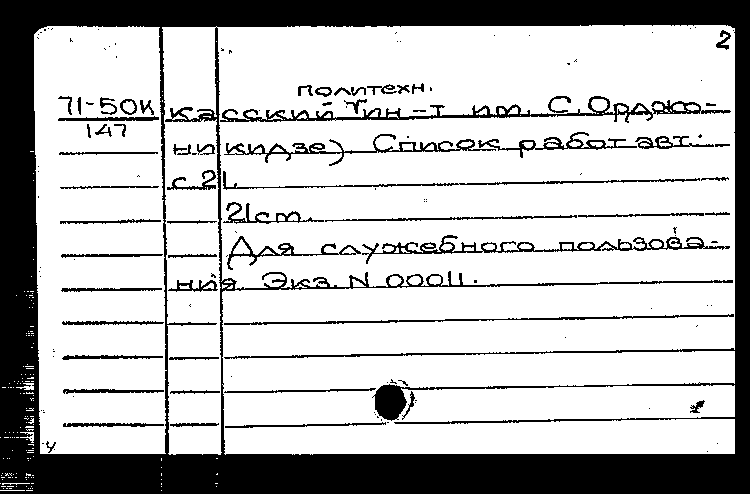 2
политехн.
71-50К касский ин-т им. С. Орджо-
147
никидзе). Список работ авт.:
с. 21.
21 cm.
Для служебного пользова-
ния. Экз. N 00011.